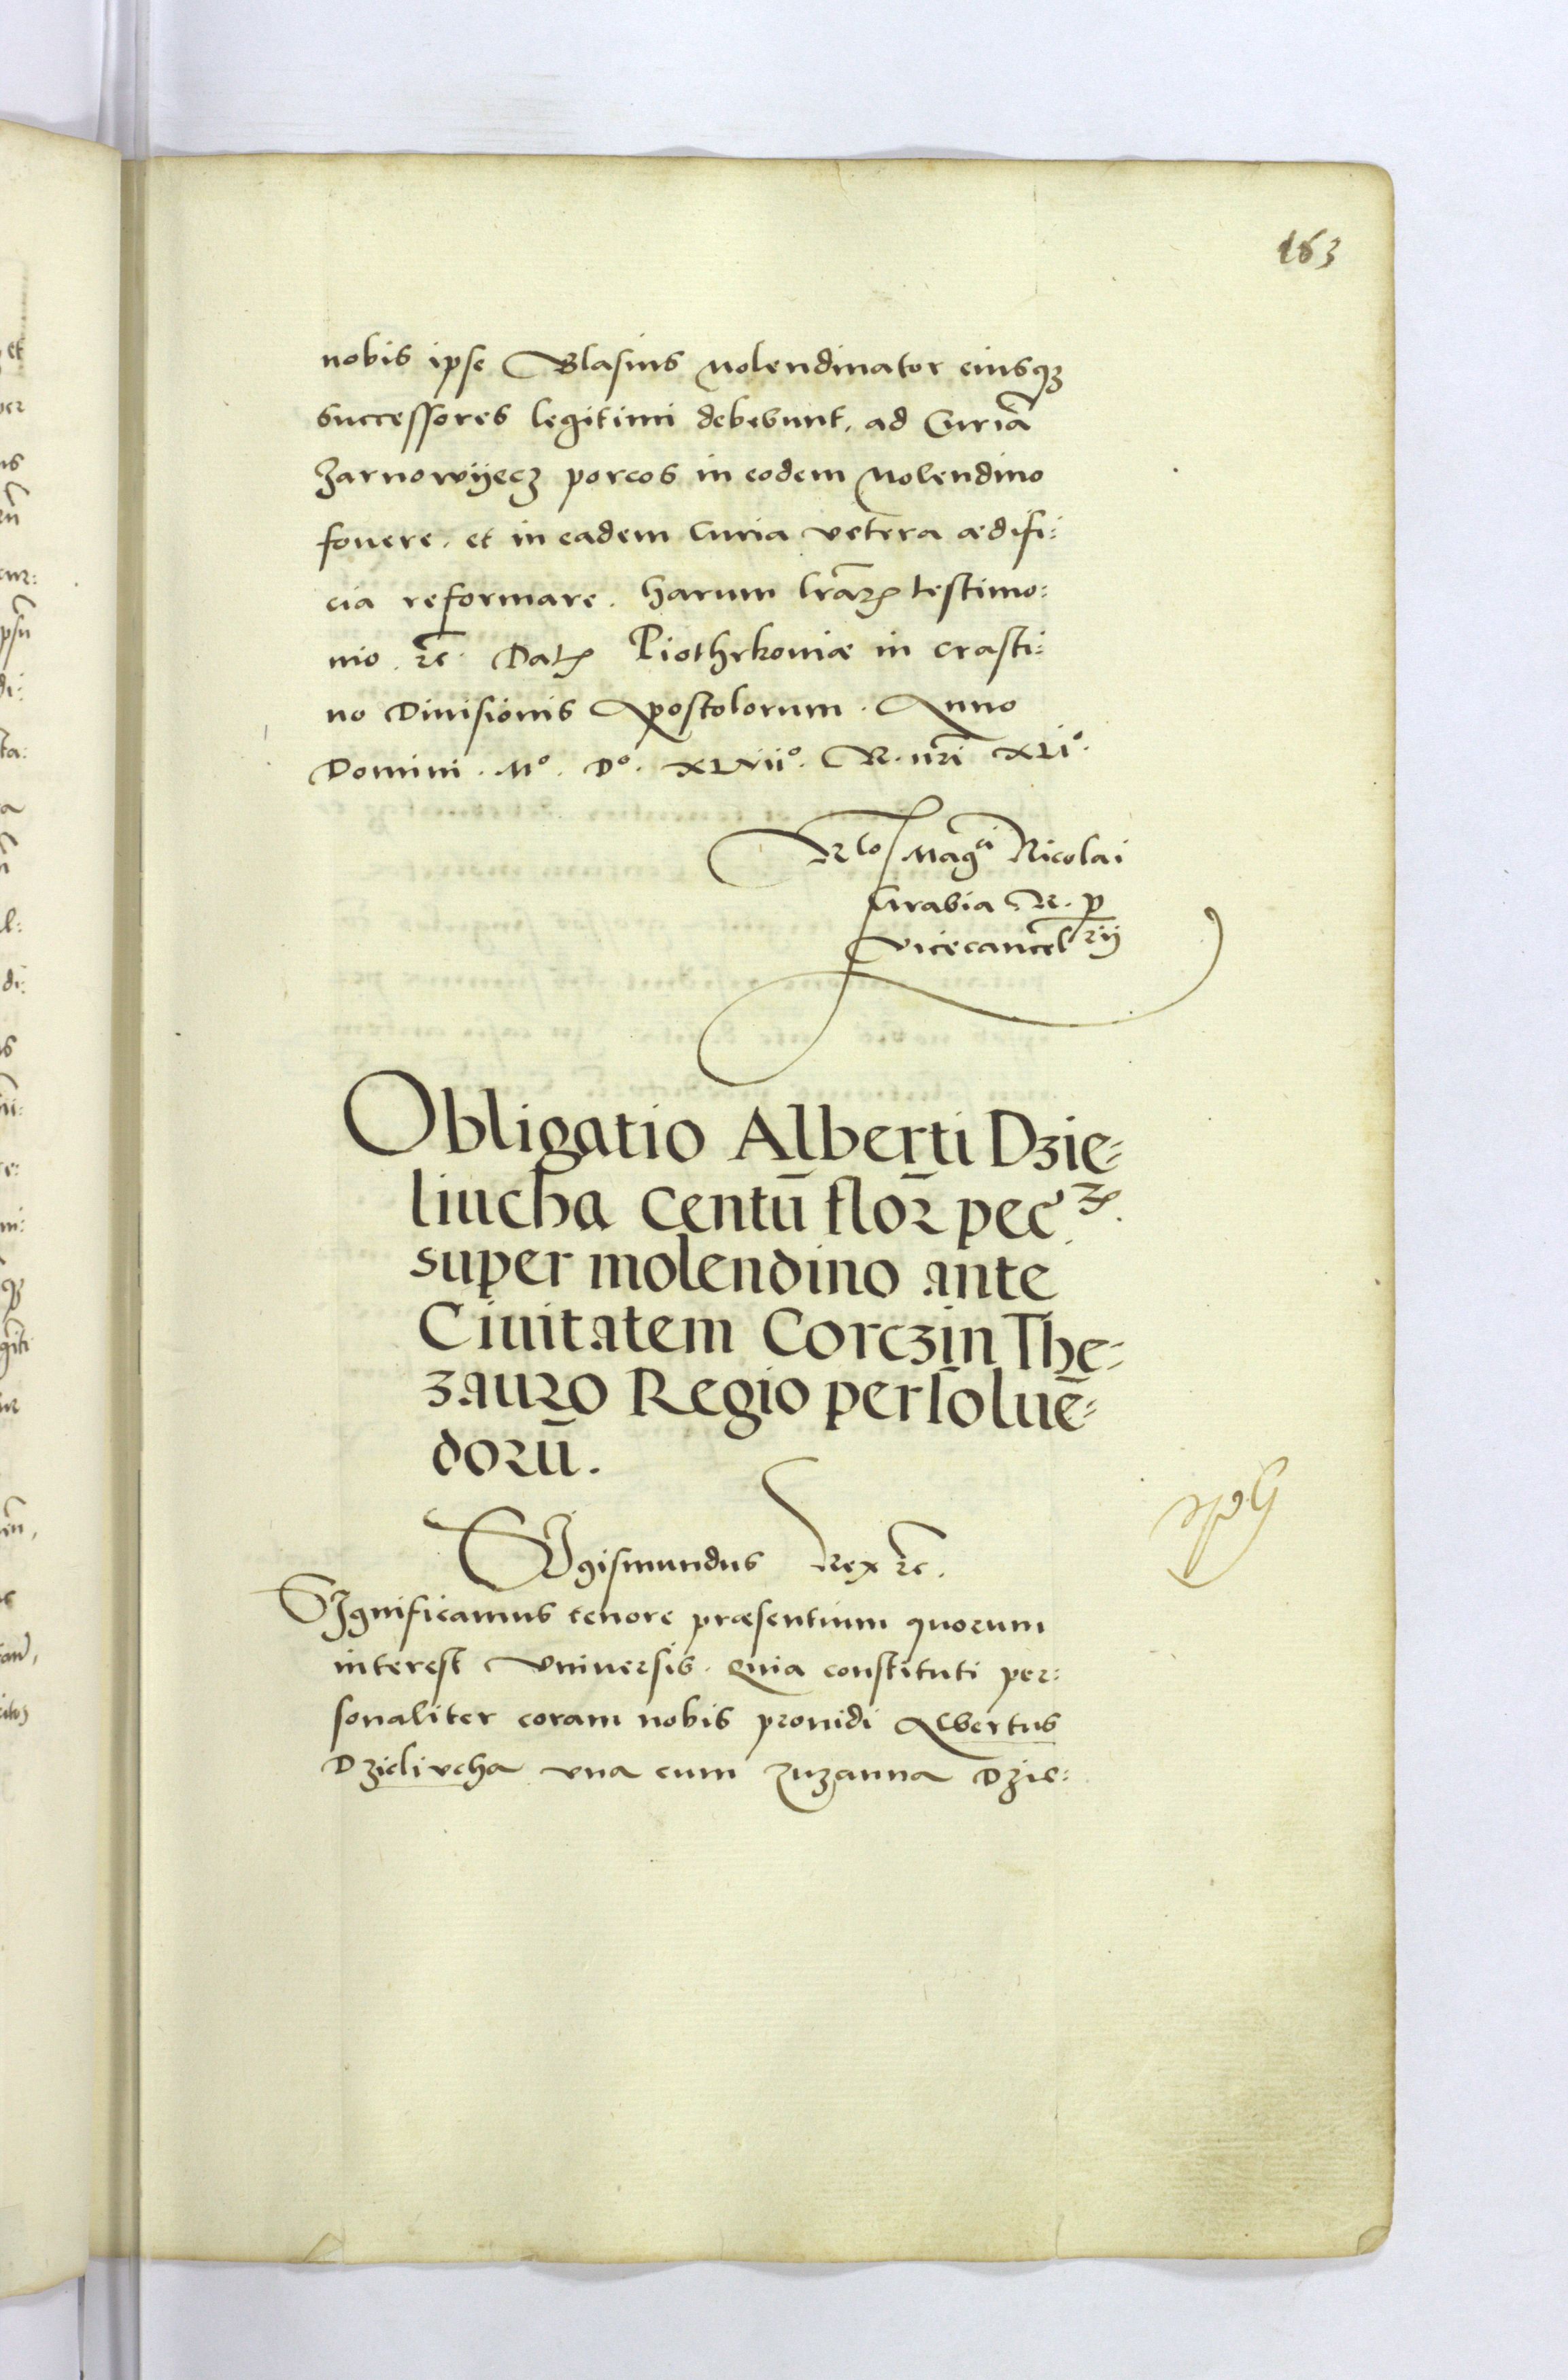 163
nobis ipse Blasius Molendinator eiusq3
successores legitimi debebunt, ad Curiã
Zarnowyecz porcos in eodem Molendino
fovere, et in eadem Curia vetera ædifi:
cia reformare. Harum lrãrꝝ testimo:
nio. rc̃. Datꝝ Piothrkoviæ in crasti:
no Divisionis Apostolorum. Anno
Domini. Mº. Dº. XLviiº. R. nr̃i XLiº.
Rlo Magci Nicolai
Grabia R. p
Vicecancelrij
Obligatio Alberti Dzie=
liucha Centũ flor pecꝝ.
super molendino ante
Civitatem Corczin The=
zauro Regio persoluẽ=
dorũ.
SIgismundus Rex rc̃.
SIgnificamus tenore præsentium quorum
interest Universis. Quia constituti per:
sonaliter coram nobis providi Albertus
Dzieliucha vna cum Zuzanna Dzie: